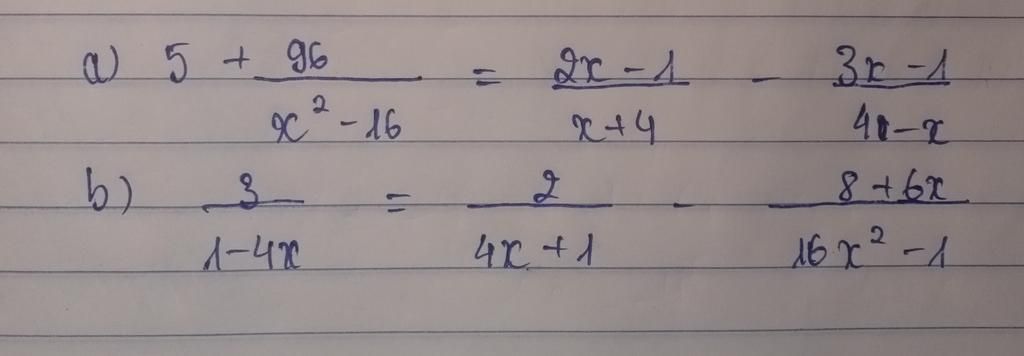 a) 5 + 96/(x² - 16) = (2x - 1)/(x + 4) - (3x - 1)/(4 - x)
b) 3/(1 - 4x) = 2/(4x + 1) - (8 + 6x)/(16x² - 1)